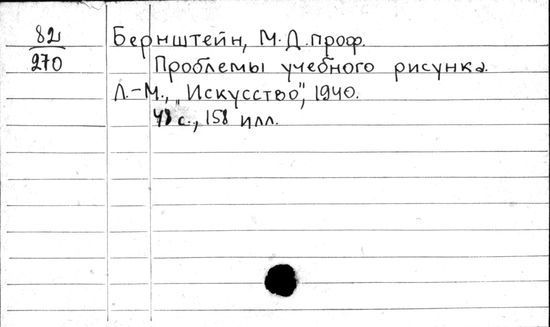 82
270
Бернштейн, М.Д. проф.
Проблемы учебного рисунка.
Л.-М., „Искусство", 1940.
с., 158 илл.